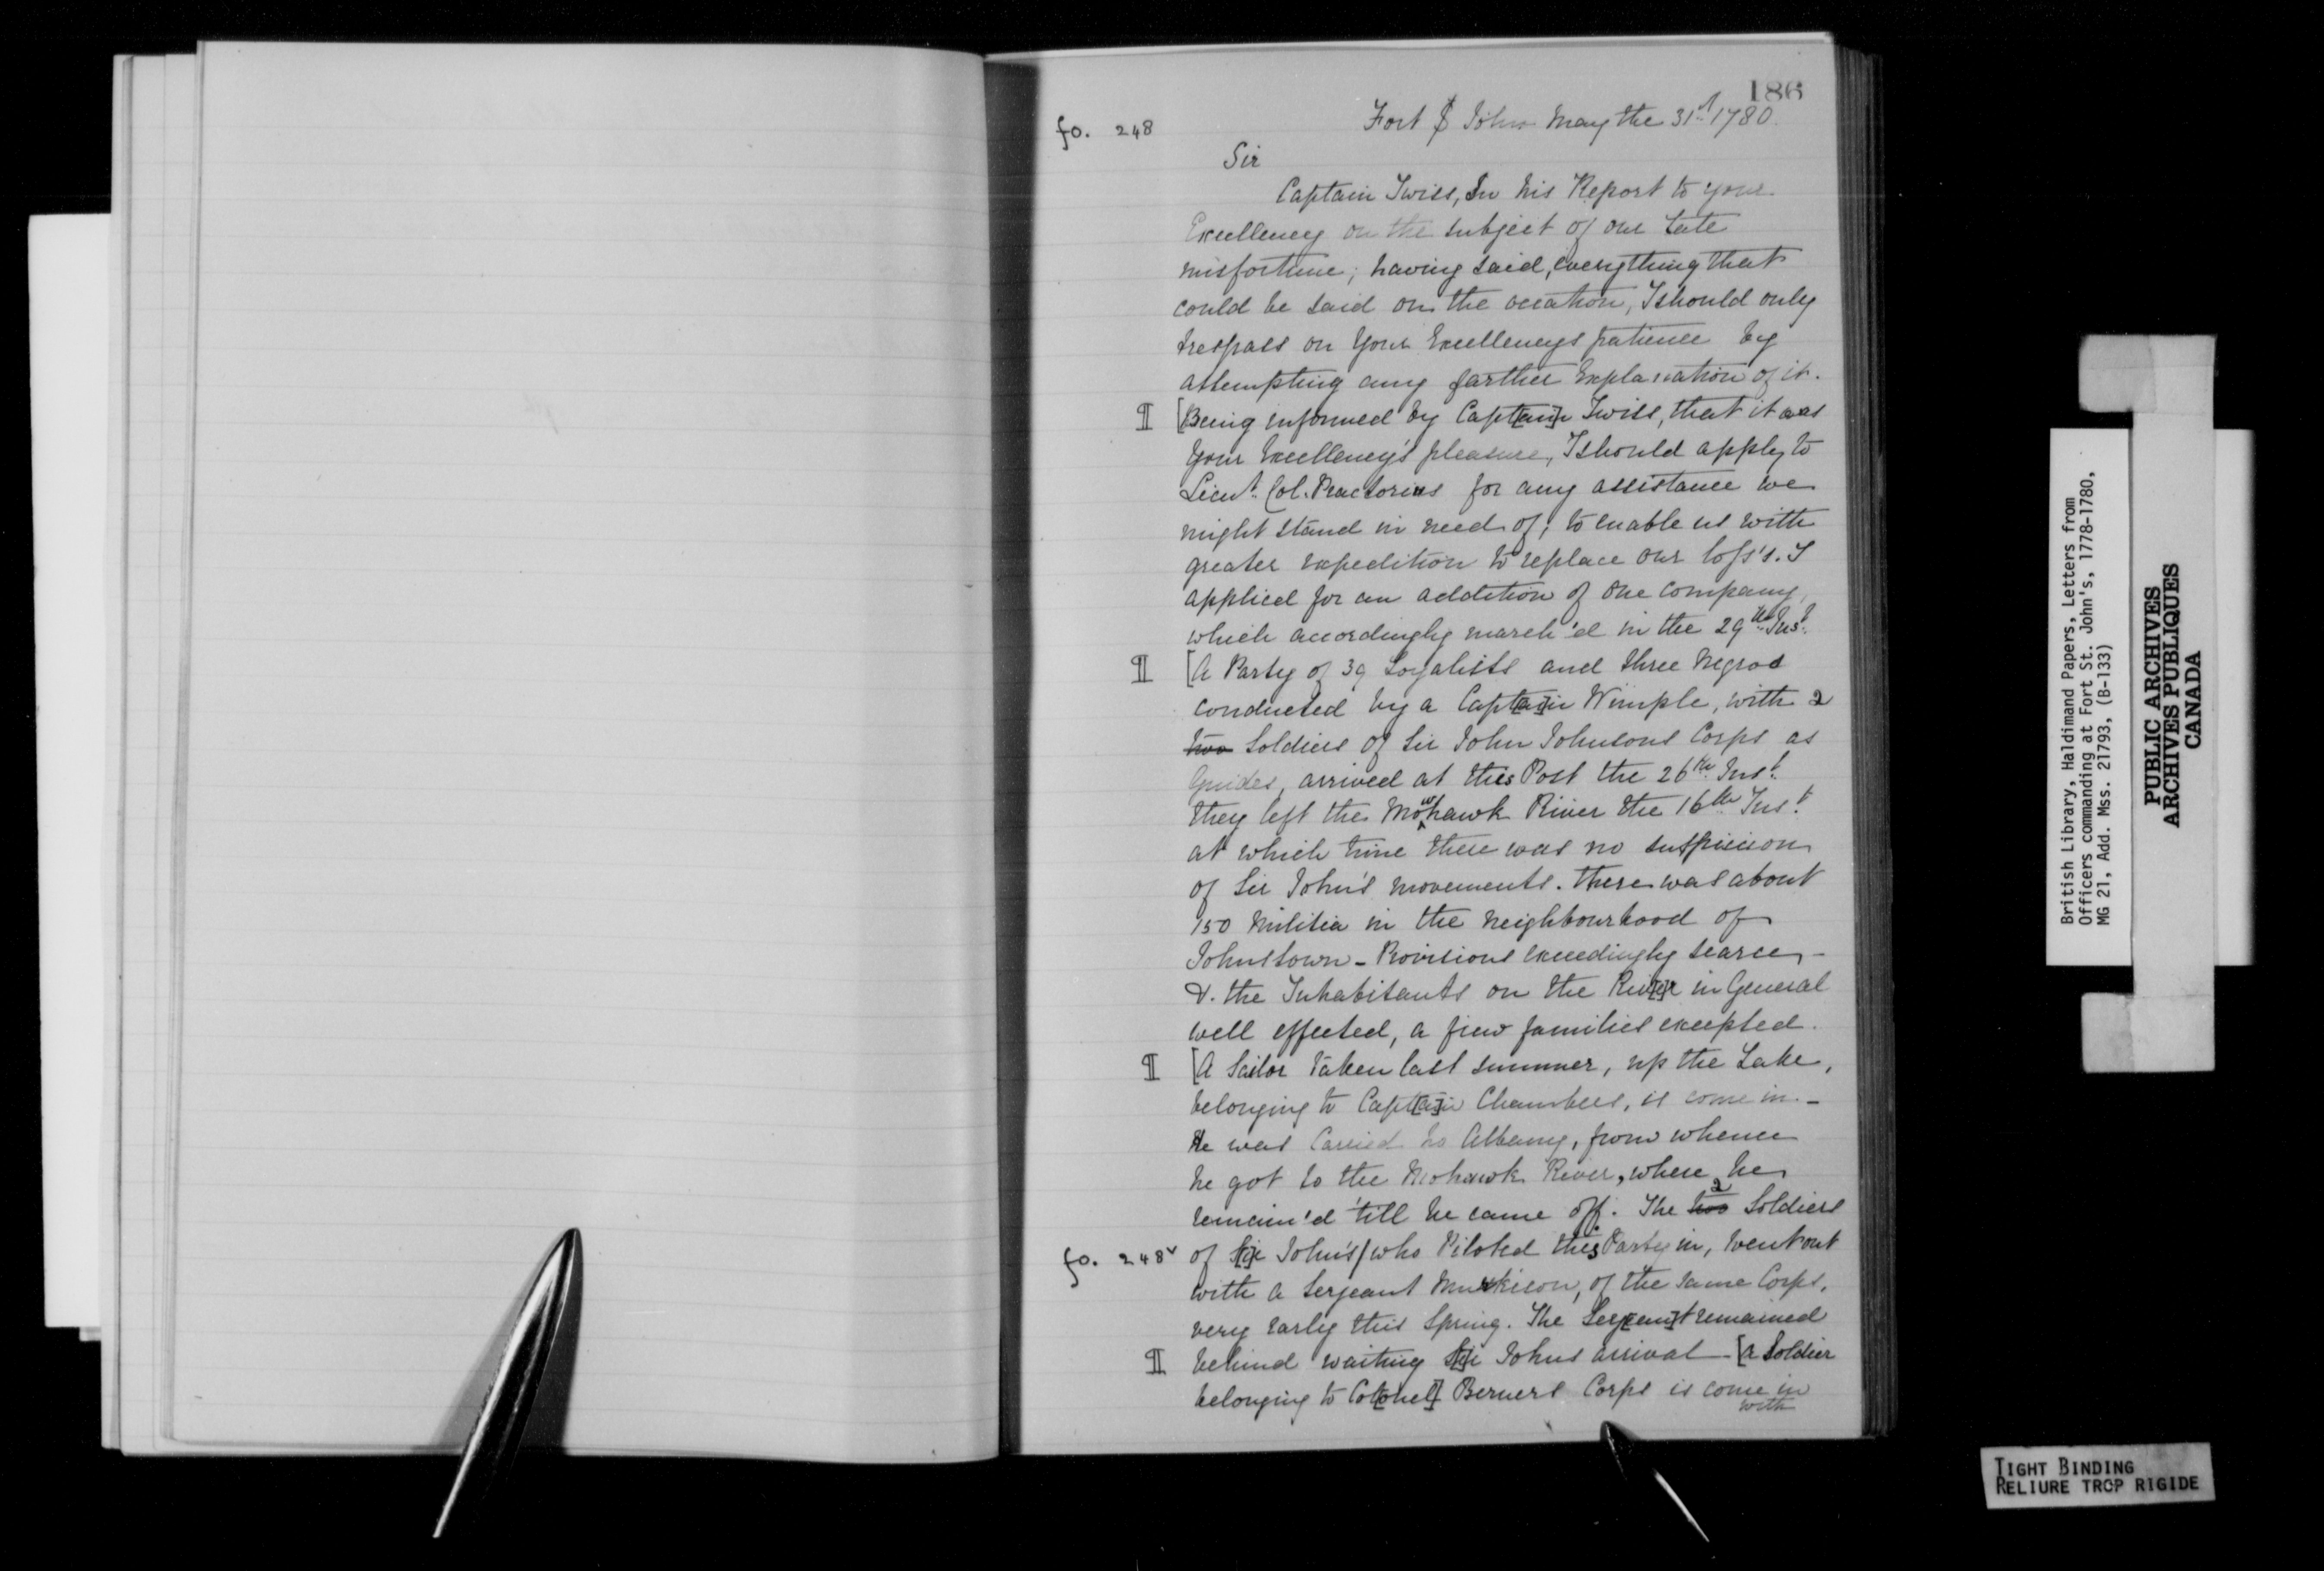 186
fo. 248
Fort St John May the 31st 1780.
Sir
Captain Twiss, In his Report to your
Excellency on the subject of our Late
misfortune; having said, everything that
could be said on the occation, I should only
trespass on Your Excellencys patience by
attempting any farther Explanation of it.
¶ [Being informed by Capt[ai]n Twiss, that it was
Your Excellency's pleasure, I should apply to
Lieut. Col. Praetorius for any assistance we
might stand in need of; to enable us with
greater expedition to replace our loss's. I
applied for an addition of one company,
which accordingly march'd in the 29th Inst.
¶ [A Party of 39 Loyalists and three Negros
conducted by a Capt[ai]n Wimple, with 2
two Soldiers of Sir John Johnsons Corps as
Guides, arrived at this Post the 26th Inst.
they left the Mowhawk River the 16th Inst.
at which time there was no suspicion
of Sir John's movements. there was about
150 Militia in the neighbourhood of
Johnstown - Provisions exceedingly scarce -
&. the Inhabitants on the Riv[e]r in General
well effected, a fiew families excepted.
¶ [A Sailor taken last summer, up the Lake,
belonging to Capt[ai]n Chambers, is come in. -
He was Carried to Albany, from whence
he got to the Mohawk River, where he
remain'd 'till he came off. The two 2 Soldiers
fo. 248v of S[i]r John's/ who Piloted this Party in, went out
with a Serjeant Murkison, of the same Corps,
very Early this Spring. The Serj[ean]t remained
¶ behind waiting S[i]r Johns arrival - [A Soldier
belonging to Col[onel] Berners Corps is come in
with
British Library, Haldimand Papers, Letters from
Officers commanding at Fort St. John's, 1778-1780,
MG 21, Add. Mss. 21793, (B-133)
PUBLIC ARCHIVES
ARCHIVES PUBLIQUES
CANADA
TIGHT BINDING
RELIURE TROP RIGIDE